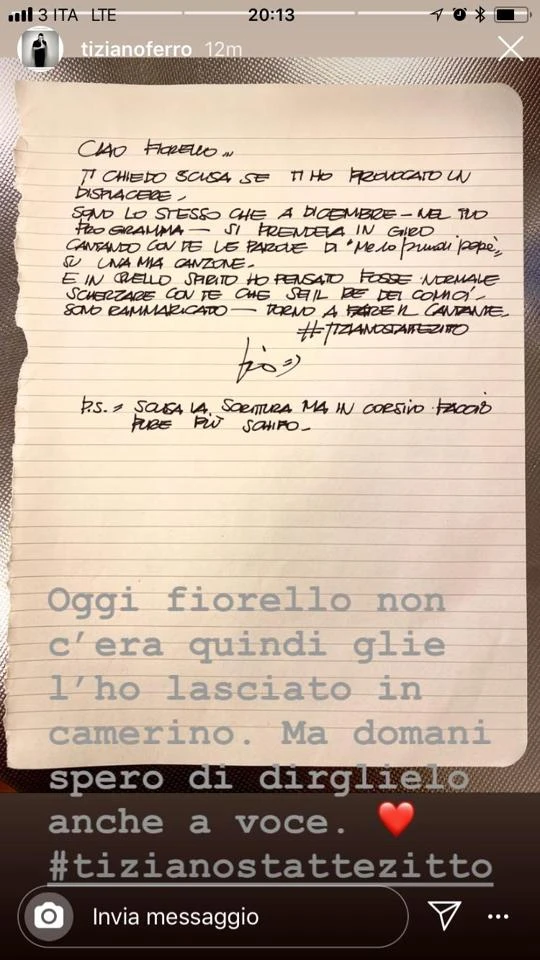 3 ITA LTE 20:13
tizianoferro 12m
CIAO FIORELLO...
TI CHIEDO SCUSA SE TI HO PROVOCATO UN
DISPIACERE.
SONO LO STESSO CHE A DICEMBRE - NEL TUO
PROGRAMMA - SI PRENDEVA IN GIRO
CANTANDO CON TE LE PAROLE DI "Me lo prendi papà"
SU UNA MIA CANZONE.
E IN QUELLO SPIRITO HO PENSATO FOSSE NORMALE
SCHERZARE CON TE CHE SEI IL RE DEI COMICI.
SONO RAMMARICATO - TORNO A FARE IL CANTANTE.
#TIZIANOSTATTEZITTO
P.S. = SCUSA LA SCRITTURA MA IN CORSIVO FACCIO
PURE PIÙ SCHIFO.
Oggi fiorello non
c'era quindi glie
l'ho lasciato in
camerino. Ma domani
spero di dirglielo
anche a voce. ❤️
#tizianostattezitto
Invia messaggio